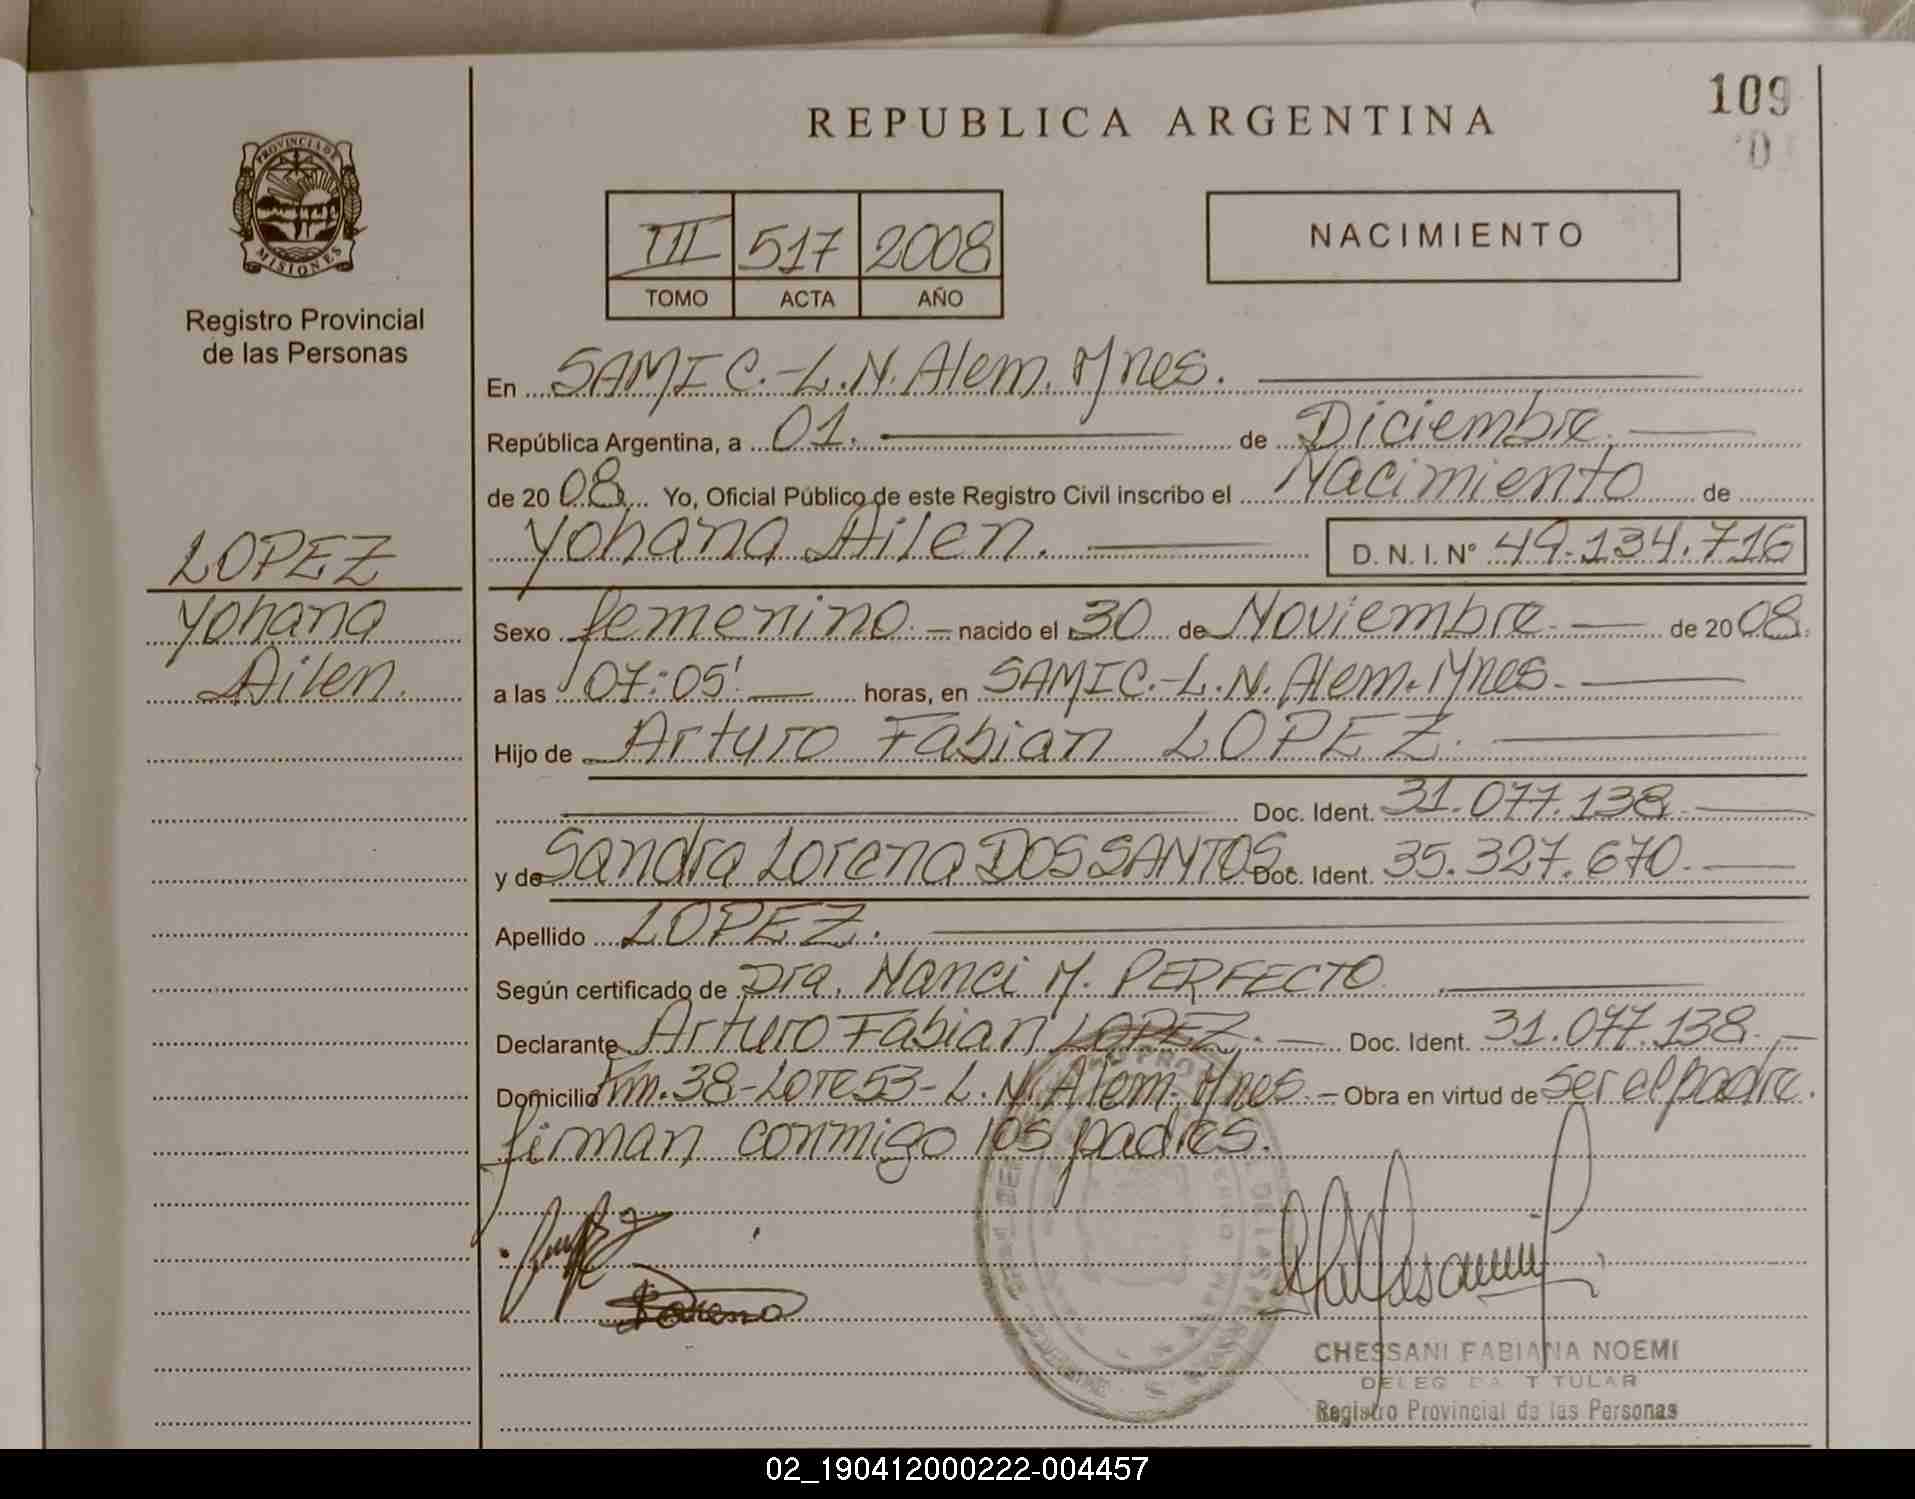 109
REPUBLICA ARGENTINA
PROVINCIA DE
MISIONES
Registro Provincial
de las Personas
III 517 2008
TOMO ACTA AÑO
NACIMIENTO
En SAMIC.-L.N.Alem.Mnes.
República Argentina, a 01. de Diciembre.
de 2008 Yo, Oficial Público de este Registro Civil inscribo el Nacimiento de
Yohana Ailen. D. N. I. N° 49.134.716
LOPEZ
Yohana
Ailen.
Sexo femenino.- nacido el 30 de Noviembre.- de 2008.
a las 07:05' horas, en SAMIC.-L.N.Alem.Mnes.-
Hijo de Arturo Fabian LOPEZ.
Doc. Ident. 31.077.138.
y de Sandra Lorena DOS SANTOS Doc. Ident. 35.327.670.
Apellido LOPEZ.
Según certificado de Dra. Nanci M. PERFECTO.
Declarante Arturo Fabian LOPEZ.- Doc. Ident. 31.077.138.-
Domicilio Km.38-Lote53-L.N.Alem.Mnes.- Obra en virtud de ser el padre.
firman conmigo los padres.
Lorena
CHESSANI FABIANA NOEMI
DELEGADA TITULAR
Registro Provincial de las Personas
02_190412000222-004457